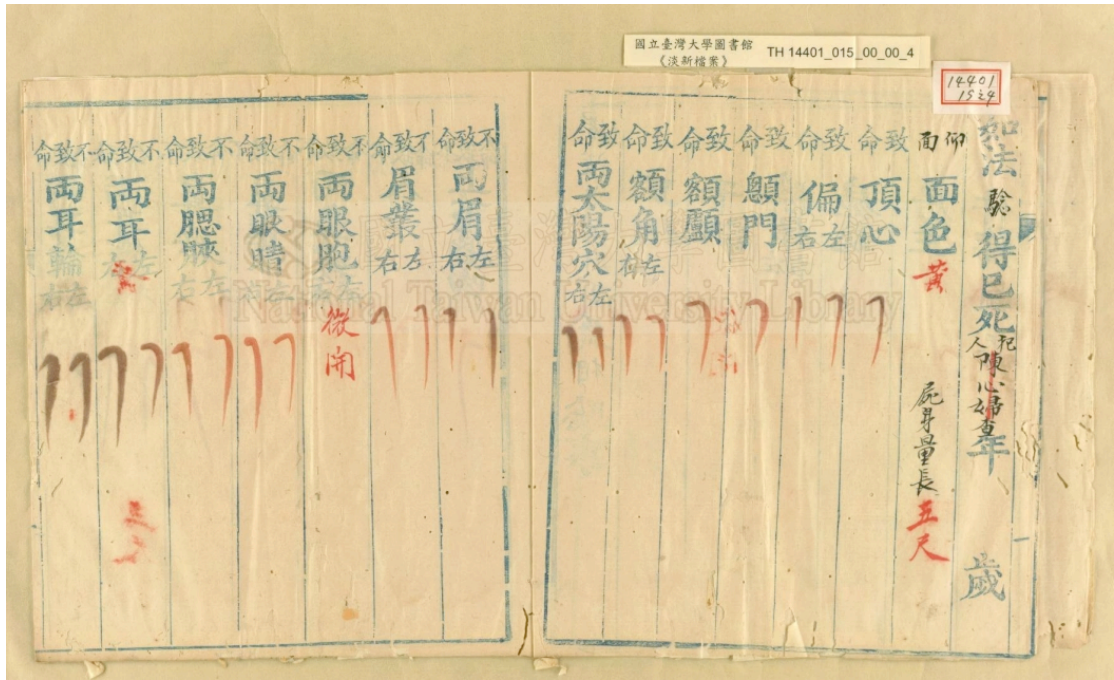 國立臺灣大學圖書館
《淡新檔案》
TH 14401_015_00_00_4
14401
15之4
如法驗得已死犯人陳心婦查年 歲
仰面面色黃 屍身量長五尺
致命頂心
致命偏左右
致命顖門
致命額顱
致命額角左右
致命両太陽穴左右
不致命両眉左右
不致命眉叢左右
不致命両眼胞左右微開
不致命両眼睛左右
不致命両腮脥左右
不致命両耳左右
不致命両耳輪左右
National Taiwan University Library